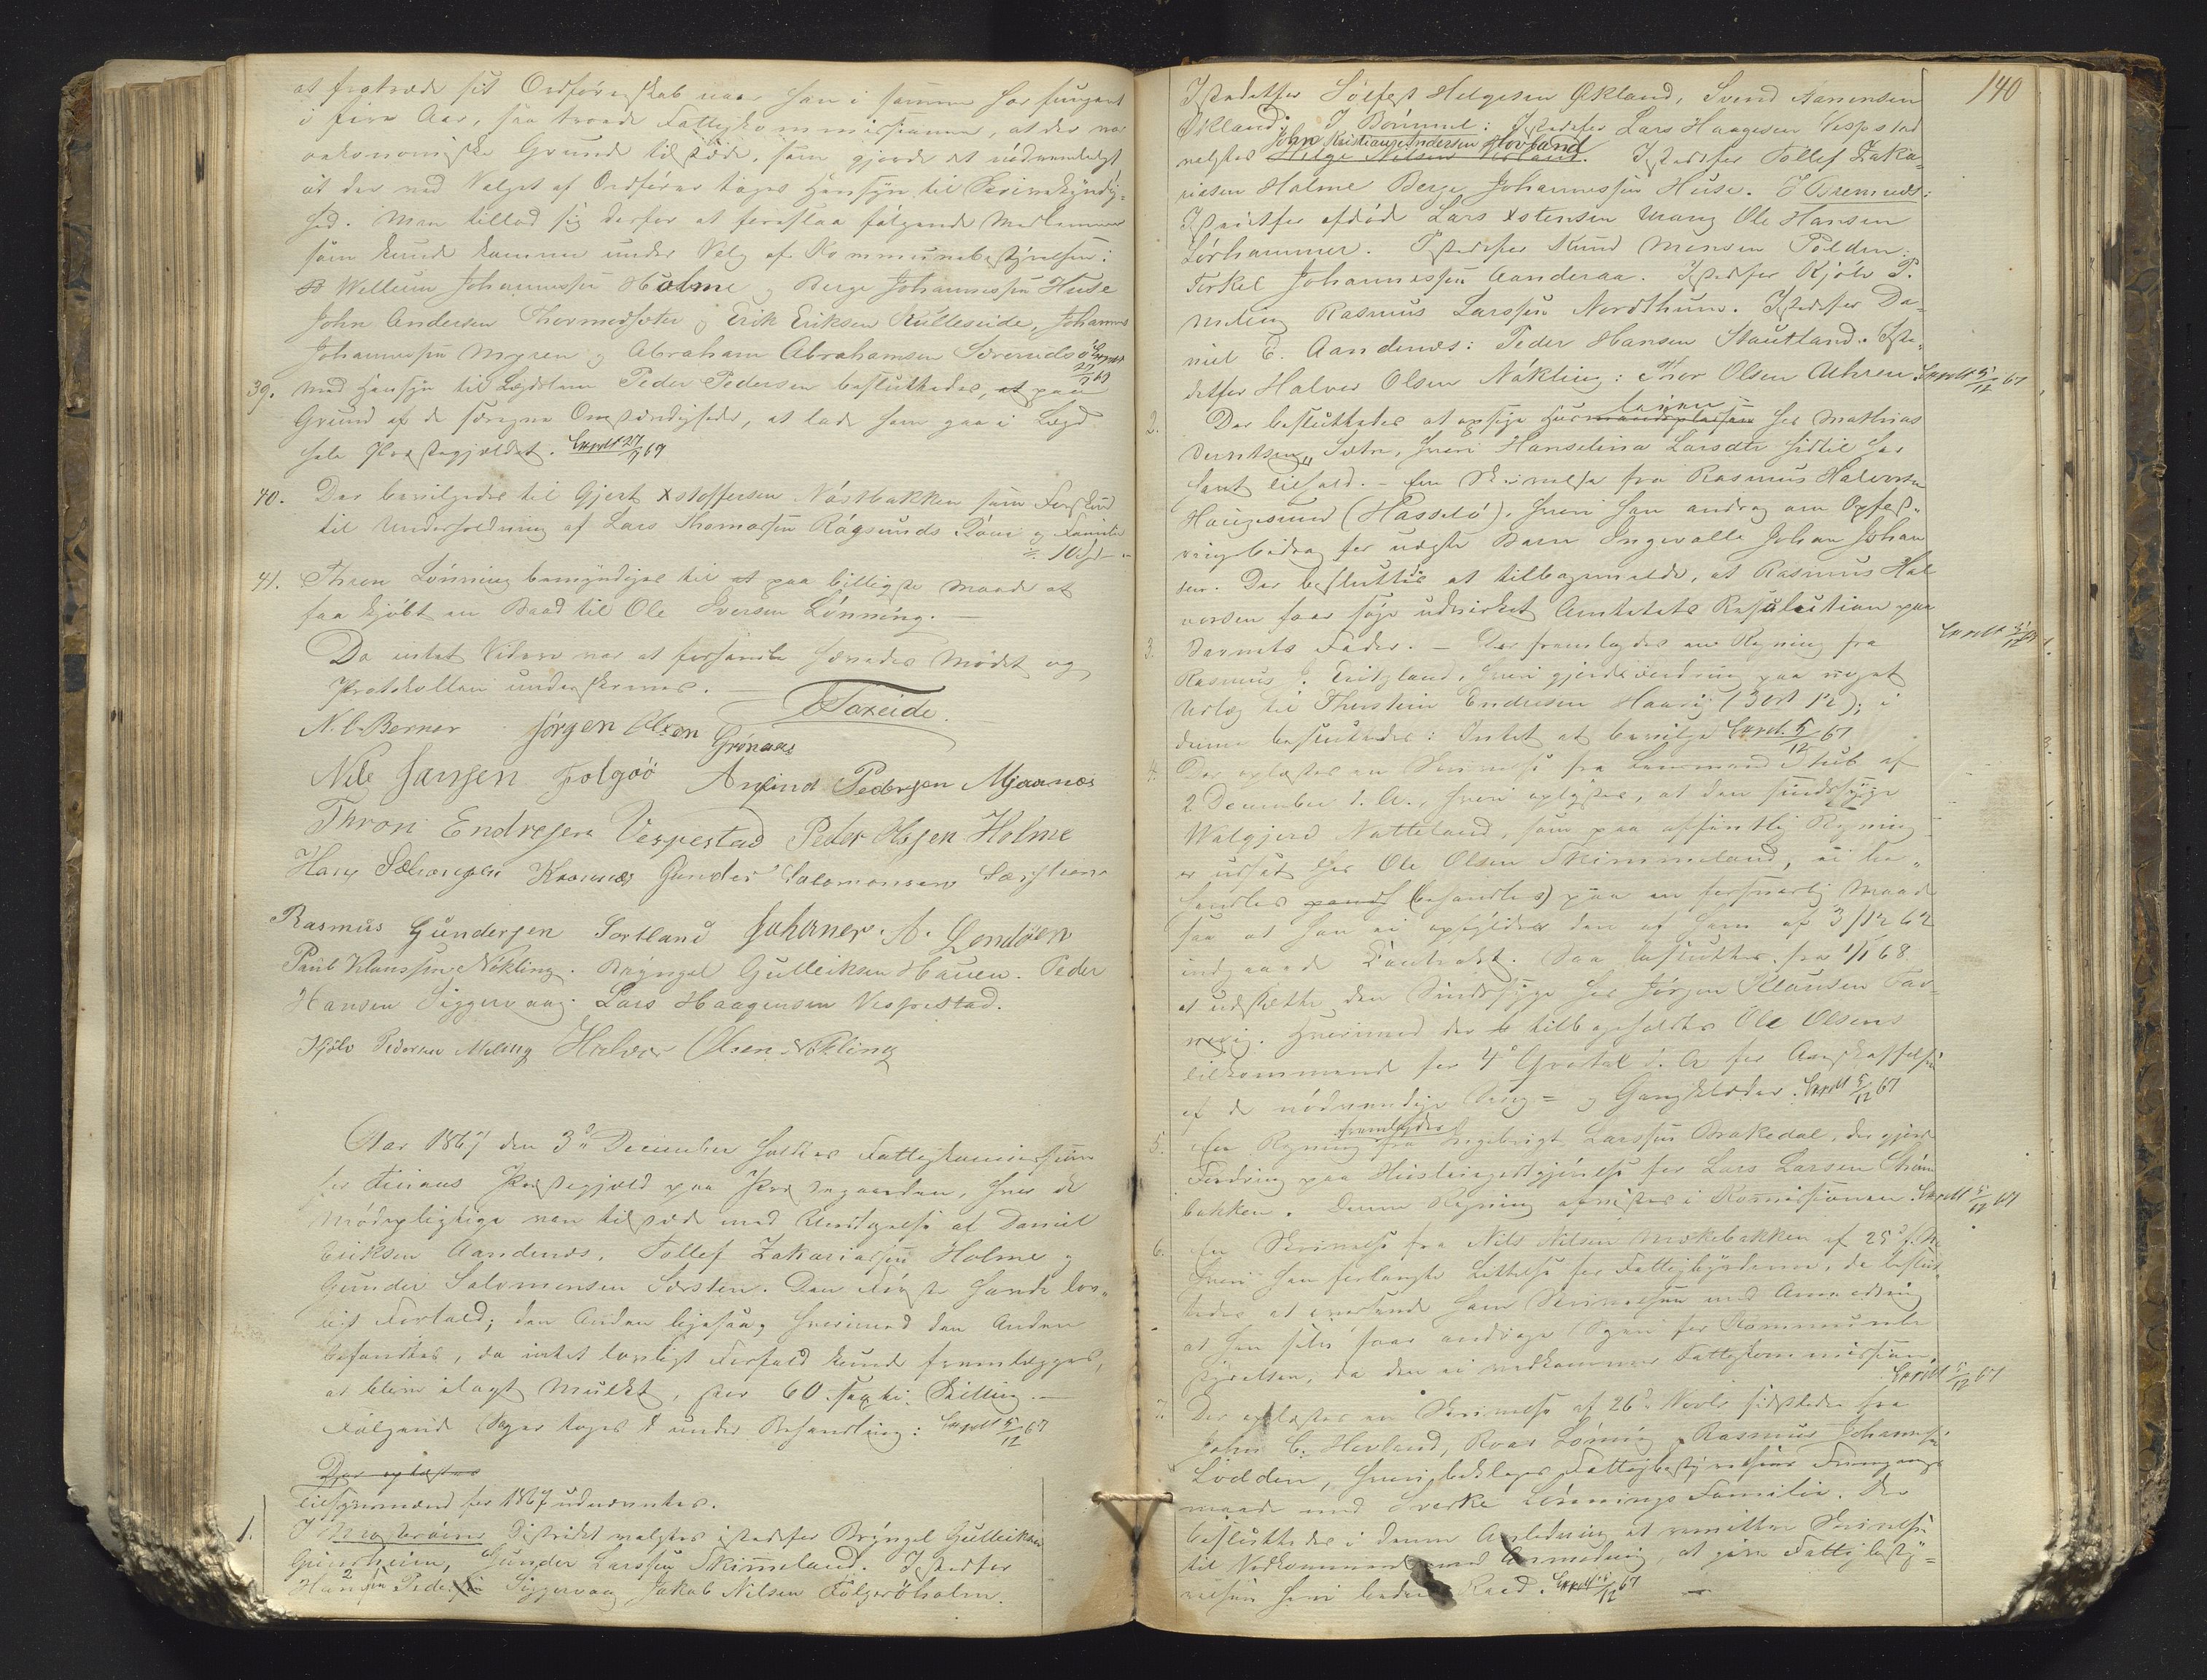 at fratræde sit Ordførerskab naar han i samme har fungeret
i fire Aar, saa troede Fattigkommissionen, at der var
oekonomiske Grunde tilstede, som gjorde det nødvendigt
at der ved Valget af Ordfører toges Hensyn til Skrivekyndig-
hed. Man tillod sig derfor at foreslaa følgende Medlemmer
som kunde komme under Valg af Kommunebestyrelsen:
Willum Johannessen Holme og Berge Johannessen Huse
John Andersen Thormodsæter og Erik Eriksen Kulleseide, Johannes
Johannessen Myren og Abraham Abrahamsen Sæveruds
39. Med Hensyn til Lægdslem Peder Pedersen besluttedes, at paa
Grund af de særegne Omstændigheder, at lade ham gaa i Lægd
hele Præstegjældet. Expedt 27/7 67
40. Der bevilgedes til Gjert Xstoffersen Nøstbakken som Forskud
til Underholdning af Lars Thomassen Røgsunds Kone og Familie
10
41. Thron Lønning bemyndiges til at paa billigste Maade at
faa kjøbt en Baad til Ole Iversen Lønning. —
Da intet Videre var at forhandle hævedes Mødet og
Protokollen underskreves. —
N. C. Berner Jørgen Olsen Grønaas
Nils Hansen Folgøö Amund Pedersen Mjaanæs
Thron Endresen Vespestad Peder Olsen Holme
Hans Kaarnæs Gunder Salomonsen Særsten
Rasmus Gundersen Sortland Johannes A. Lendøen
Paul Klaussen Nökling. Bryngel Gulleiksen Hauen. Peder
Hansen Siggervaag. Lars Haagensen Vespestad.
Kjölv Pedersen Meling Halvor Olsen Nökling
Aar 1867 den 3die December holdtes Fattigkommission
for Finaas Præstegjæld paa Præstegaarden, hvor de
Mødepligtige var tilstede med Undtagelse af Daniel
Eriksen Aandenæs, Tollef Zakariassen Holme og
Gunder Salomonsen Særsten. Den Første havde lov-
ligt Forfald; den Anden ligesaa, hvorimod den Anden
befandtes, da intet lovligt Forfald kunde fremlægges,
at blive ilagt Mulkt, stor 60 sexti Skilling. —
Følgende Sager toges under Behandling: Expedt 5/12 67
Der oplæstes
Tilsynsmænd for 1867 udnævntes.
1. I Mosterøens Distrikt valgtes istedetfor Bryngel Gulleiksen
Gunder Larssen Skimmeland. Istedetfor
Hansen Peder Siggervaag Jakob Nilsen Folgerøholm.
140
Istedetfor Sølfest Helgesen Økland, Svend Aanensen
Økland. I Bömmel: Istedetfor Lars Haagensen Vespestad
John Kristian Andersen Hovland
valgtes Helge Nilsen. Istedetfor Tollef Zaka-
riesen Holme Berge Johannessen Huse. I Bremnæs:
Istedetfor afdøde Lars Xstensen Urang Ole Hansen
Lørhammer. Istedetfor Knud Monsen Polden
Torkel Johannessen Aanderaa. Istedetfor Kjölv P.
Meling Rasmus Larssen Nordthun. Istedetfor Da-
niel E. Aandenæs: Peder Hansen Stautland. Iste-
detfor Halvor Olsen Nökling: Thor Olsen Uhren. Expedt 5/12 67
2. Der besluttedes at opsige Husleien hos Mathias
Sætre, hvori Hanselina Larsdtr hidtil har
havt Tilhold. — En Skrivelse fra Rasmus Halvorsen
Haugesund (Hasselö), hvori han androg om Opfost-
ringsbidrag for uægte Barn Ingevalle Johan Johan
sen. Der besluttes at tilbagemelde, at Rasmus Hal
vorsen faar søge udvirket Amtets Resolution paa
3. Barnets Fader. — Der fremlagdes en Regning fra Expedt 5/12 67
Rasmus J. Eritzland, hvori gjordes Fordring paa noget
Udlæg til Thorstein Endresen Haarig (3 ort 12); i
denne besluttedes: Intet at bevilge Expedt. 5/12 67
4. Der oplæstes en Skrivelse fra Lensmand Stub af
2 December d. A., hvori oplystes, at den sindssyge
Walgjerd Natteland, som paa offentlig Regning
er udsat hos Ole Olsen Skimmeland, ei be-
handles (behandles) paa en forsvarlig Maade
saa at han ei opfylder den af ham af 3/12 62
indgaaede Contrakt. Saa besluttes, fra 1/1 68
at udsætte den Sindssyge hos Jørgen Klausen Tar-
nevig. Hvorimod der tilbageholdes Ole Olsens
tilkommende for 4de Qvartal d. A. for Anskaffelse
af de nødvendige Seng= og Gangklæder. Expedt 5/12 67
5. En Regning fremlagdes fra Ingebrigt Larssen Brakedal, der gjør
Fordring paa Husleiegodtgjørelse for Lars Larsen
bakken. Denne Regning afvistes i Kommissionen. Expedt 5/12 67
6. En Skrivelse fra Nils Nilsen Myskebakken af 25de f. M.
hvori han forlangte Lettelse for Fattigbyrderne, da beslut
tedes at oversende ham Skrivelsen med Anmodning
at han selv faar andrage Sagen for Kommunebe
styrelsen, da den ei vedkommer Fattigkommissionen. Expedt 5/12 67
7. Der oplæstes en Skrivelse af 26de Novbr sidstleden fra
John C. Hovland, Roar Lønning, Rasmus Johannessen
Lodden, hvori beklages Fattigbestyrelsens Fremgangs
maade med Sverke Lønnings Familie. Der
besluttedes i denne Anledning at remittere Skrivelsen
til Vedkommende med Anmodning, at give Fattigbesty-
relsen Raad. Expedt 5/12 67